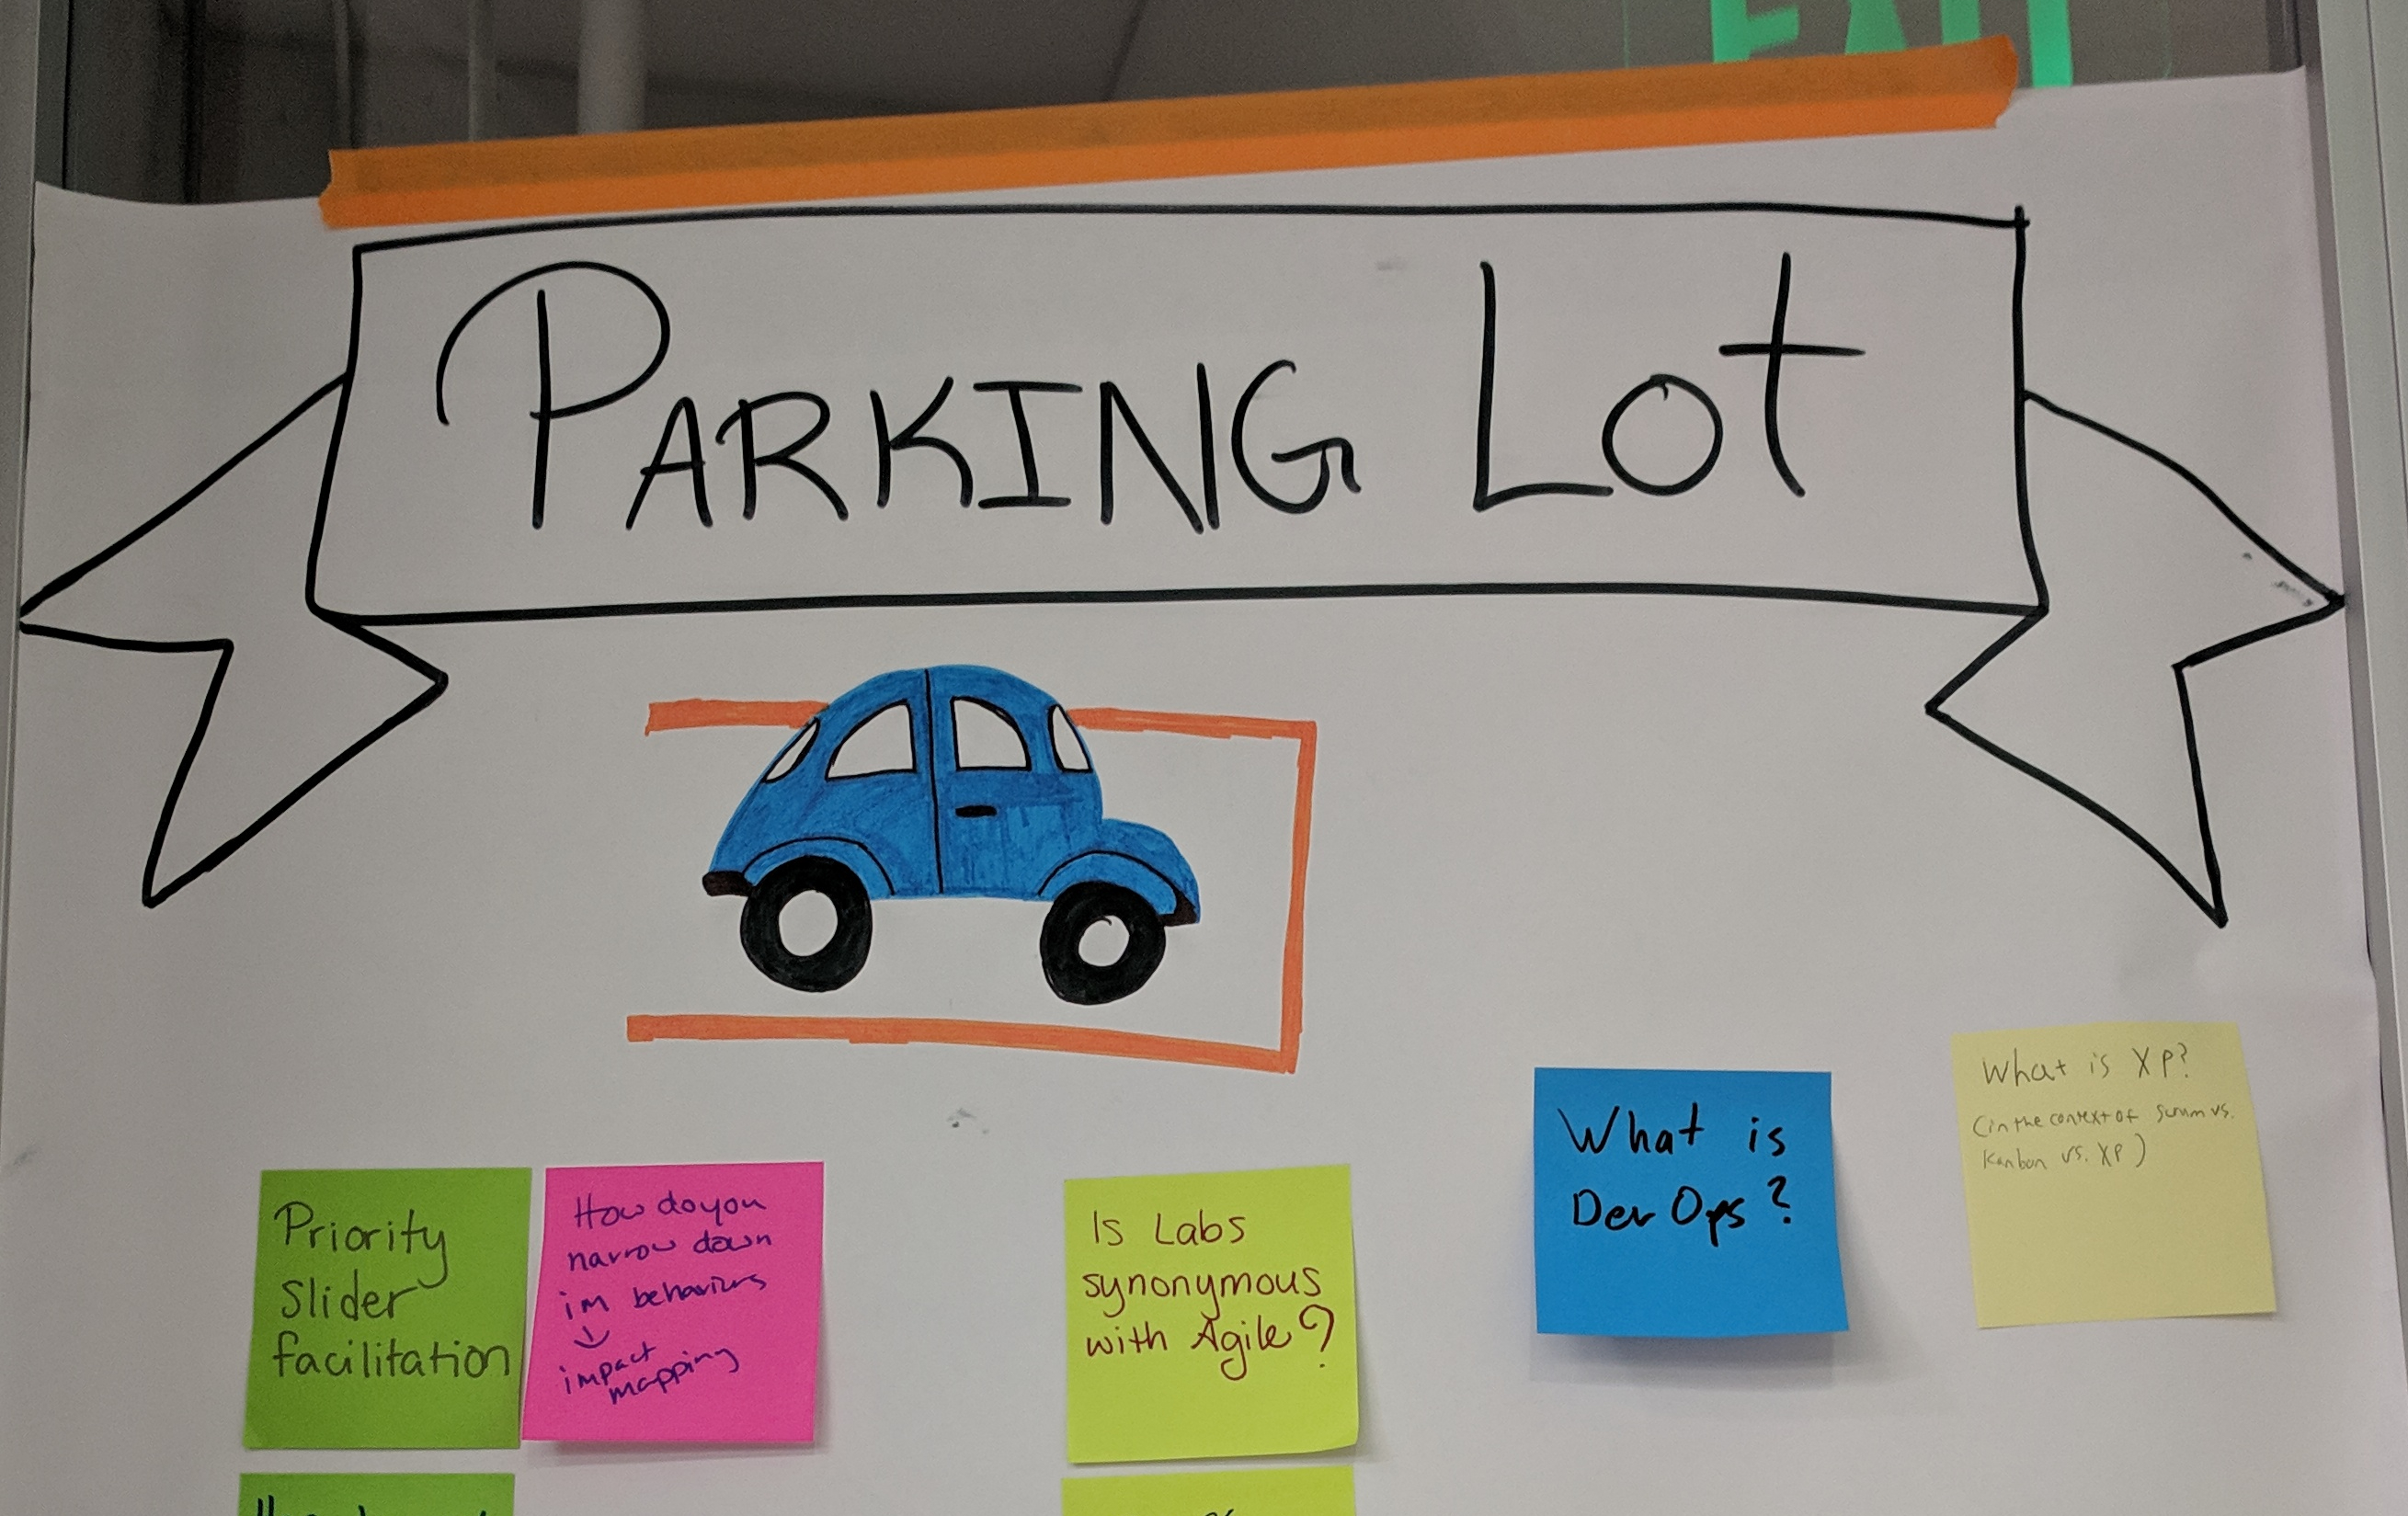 EXIT
PARKING Lot
Priority
Slider
facilitation
How do you
narrow down
im behaviors
impact
mapping
Is Labs
synonymous
with Agile?
What is
Dev Ops?
What is XP?
(in the context of Scrum vs.
Kanban vs. XP)